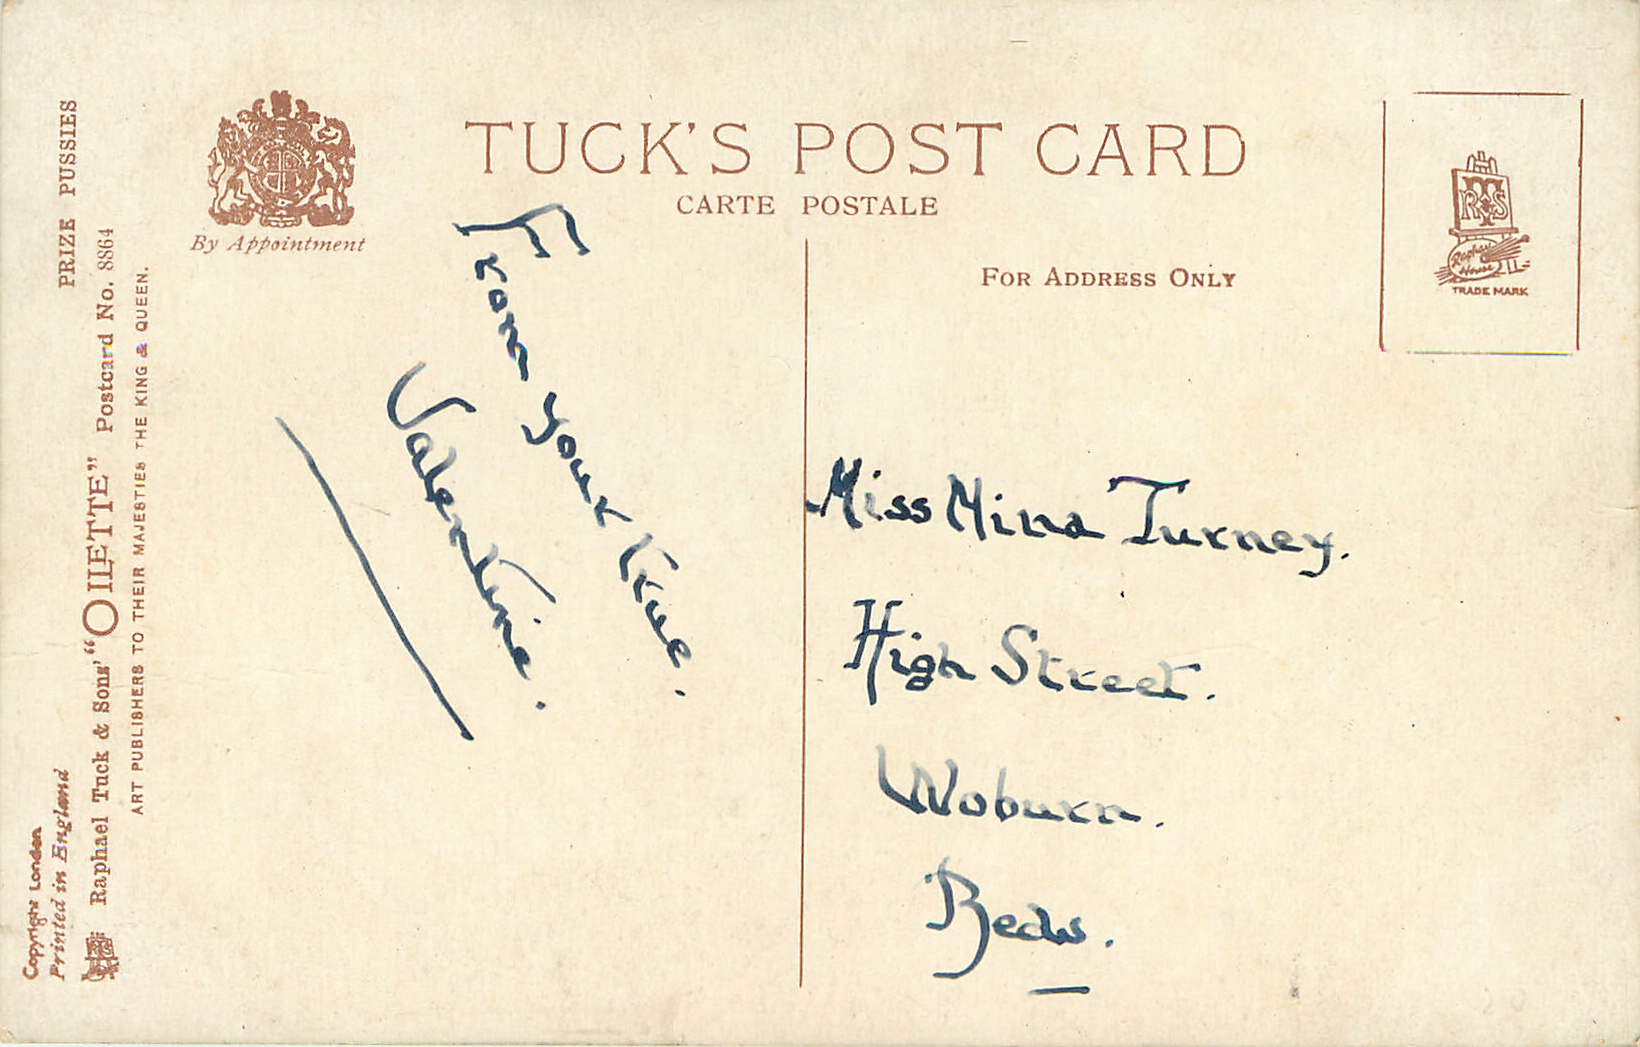 TUCK'S POST CARD
CARTE POSTALE
By Appointment
FOR ADDRESS ONLY
RTS
Raphael House
TRADE MARK
PRIZE PUSSIES
Raphael Tuck & Sons' "OILETTE" Postcard No. 8864
ART PUBLISHERS TO THEIR MAJESTIES THE KING & QUEEN.
Copyright London
Printed in England
From your true.
Valentine.
Miss Mina Turney.
High Street.
Woburn.
Beds.